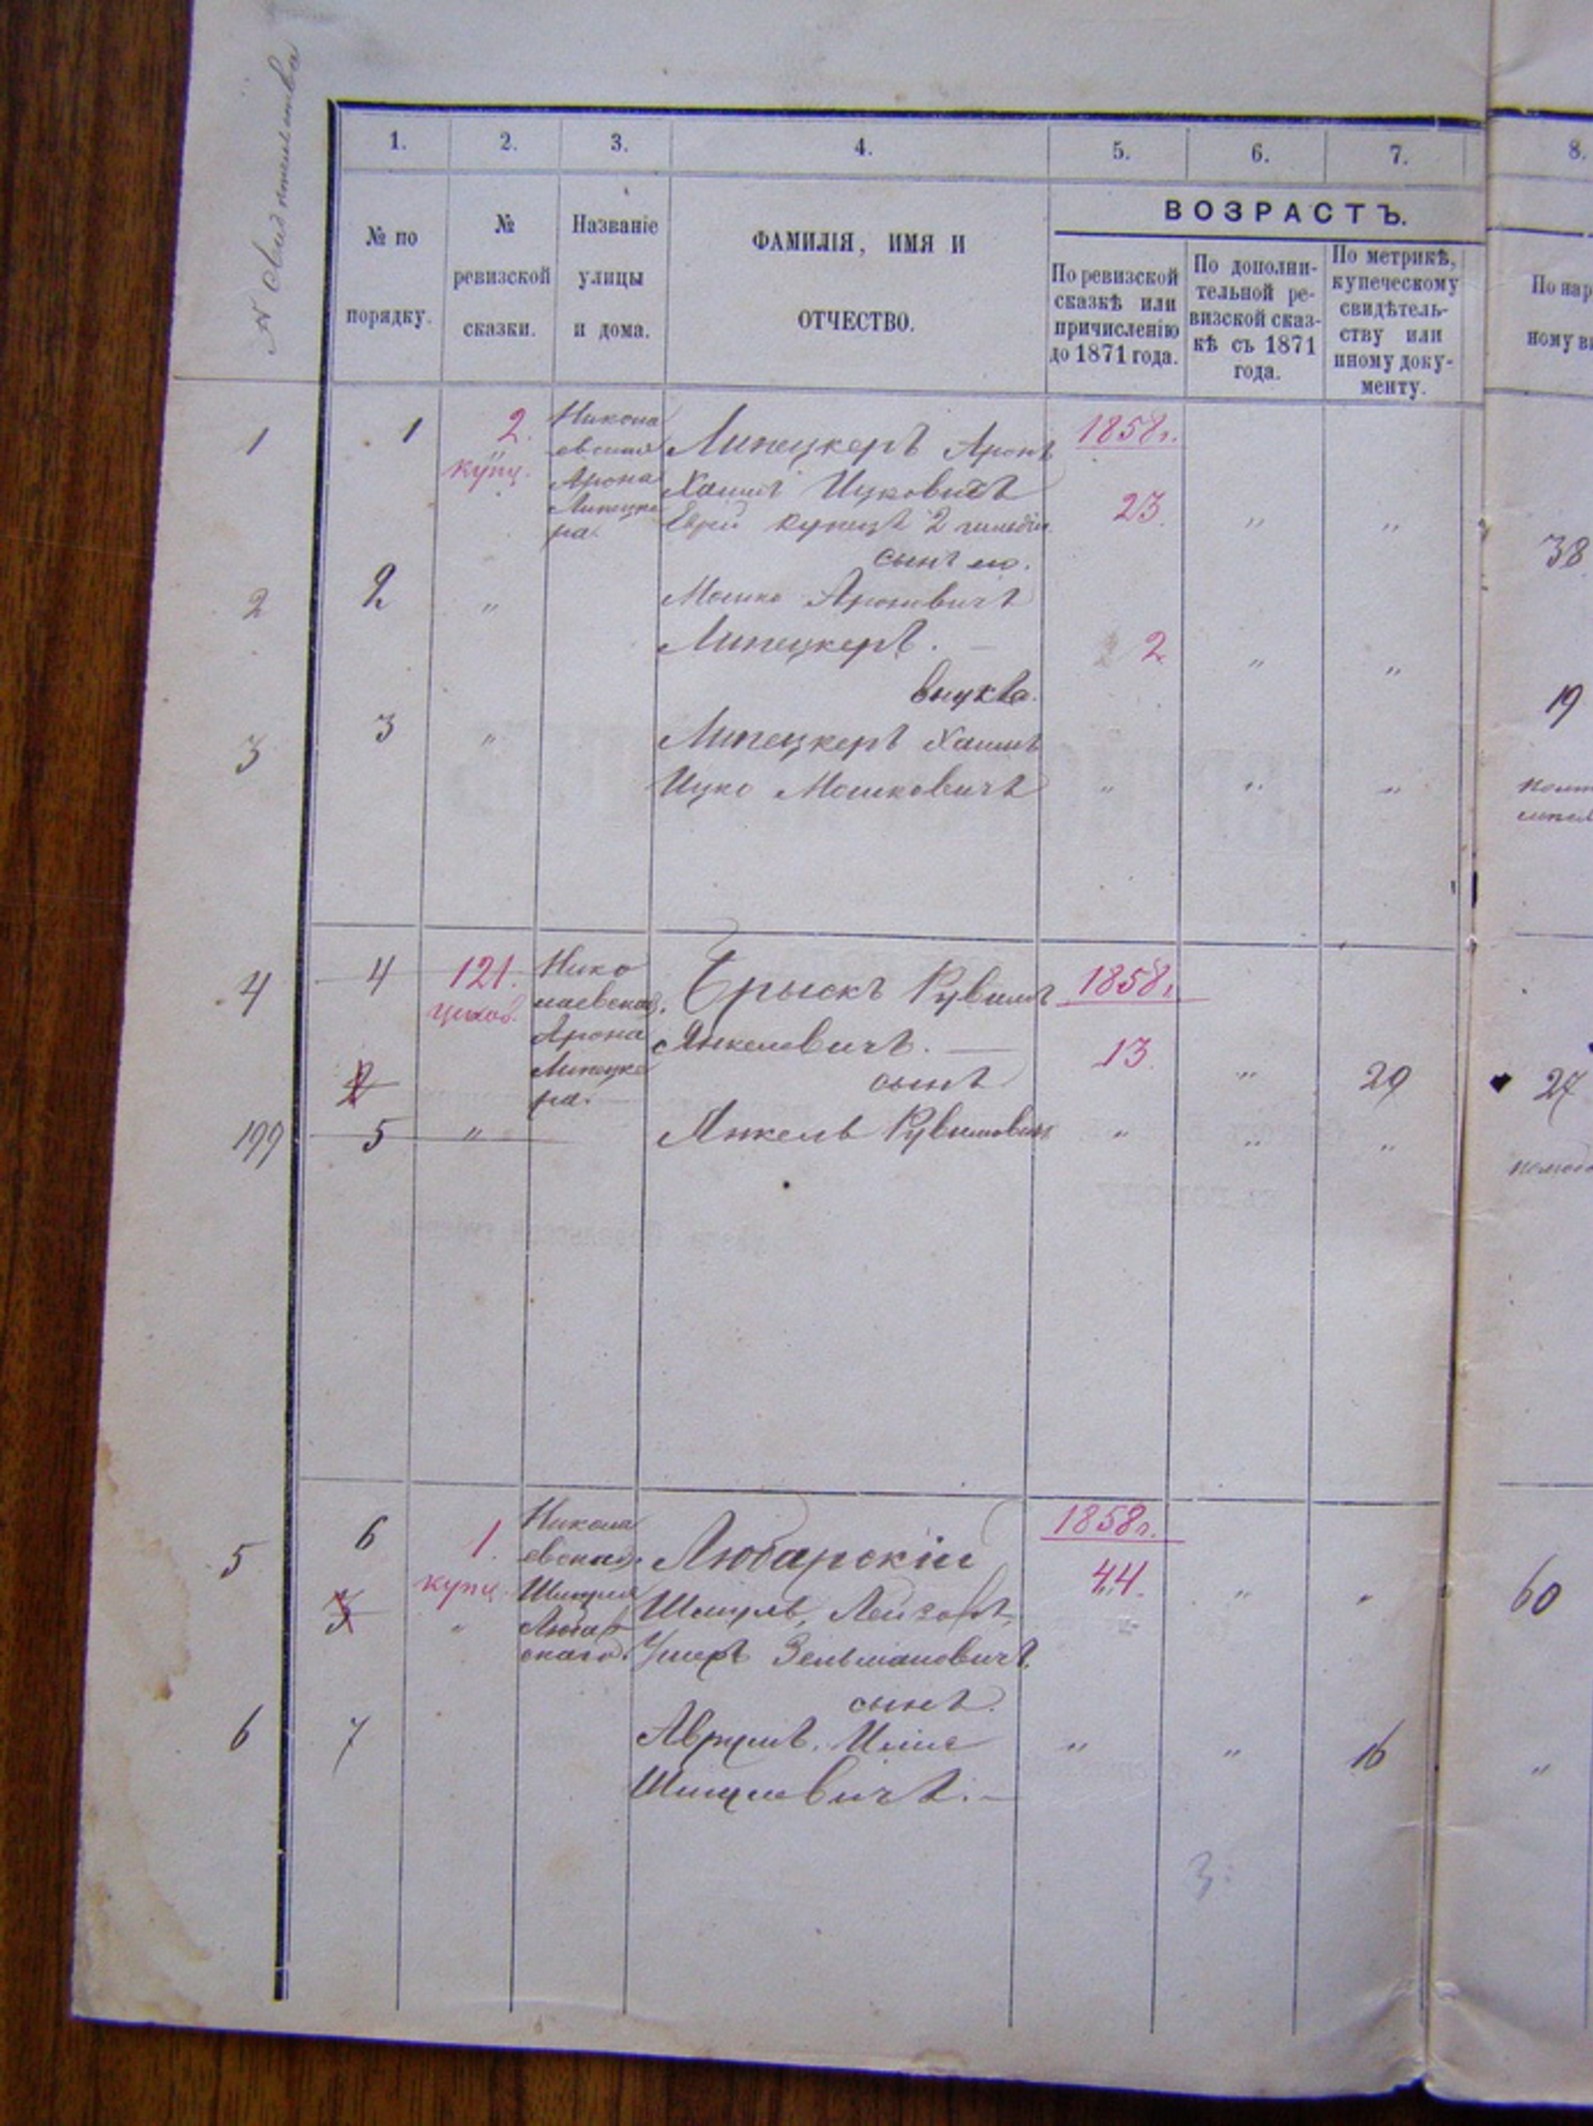 № Свидѣтельства
1. 2. 3. 4. 5. 6. 7. 8.
№ по
порядку.
№
ревизской
сказки.
Названіе
улицы
и дома.
ФАМИЛІЯ, ИМЯ И
ОТЧЕСТВО.
ВОЗРАСТЪ.
По ревизской
сказкѣ или
причисленію
до 1871 года.
По дополни-
тельной ре-
визской сказ-
кѣ съ 1871
года.
По метрикѣ,
купеческому
свидѣтель-
ству или
иному доку-
менту.
По нар
ному ви
1 1 2. купц.
Никола
евская
Арона
Липецке
ра.
Липецкеръ Аронъ
Хаимъ Ицковичъ
Еврей купецъ 2 гильдіи
1858г.
23 " " 38
сынъ его.
2 2 "
Мошко Ароновичъ
Липецкеръ. —
2 " " 19
внукъ.
3 3 "
Липецкеръ Хаимъ
Ицко Мошковичъ " " "
4 4 121. цехов.
Нико
лаевская,
Арона
Липецке
ра.
Брыскъ Рувимъ
Янкелевичъ. —
1858г.
13. " 29 27
2
сынъ
199 5 "
Янкель Рувимовичъ " " "
5 6 1. купц.
3 "
Никола
евская,
Шмуля
Любар
скаго.
Любарскій
Шмуль, Лейзоръ,
Ушеръ Зельмановичъ.
1858г.
44. " " 60
сынъ.
6 7
Аврумъ. Шмулевичъ. —
" " 16 "
3.